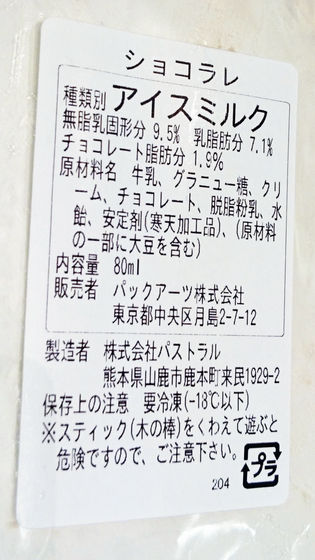 ショコラレ
種類別 アイスミルク
無脂乳固形分 9.5% 乳脂肪分 7.1%
チョコレート脂肪分 1.9%
原材料名 牛乳、グラニュー糖、クリ
ーム、チョコレート、脱脂粉乳、水
飴、安定剤(寒天加工品)、(原材料
の一部に大豆を含む)
内容量 80ml
販売者 パックアーツ株式会社
東京都中央区月島2-7-12
製造者 株式会社パストラル
熊本県山鹿市鹿本町来民1929-2
保存上の注意 要冷凍(-18℃以下)
※スティック(木の棒)をくわえて遊ぶと
危険ですので、ご注意下さい。
204 プラ